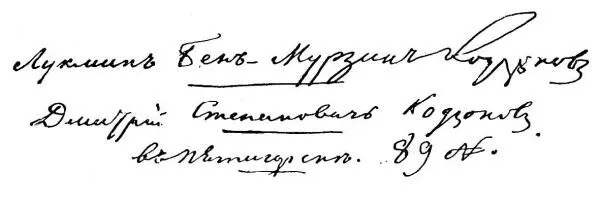 Лукманъ Бекъ-Мурзинъ Кодзоковъ
Дмитрій Степановичъ Кодзоковъ
въ Пятигорскѣ. 89 №.